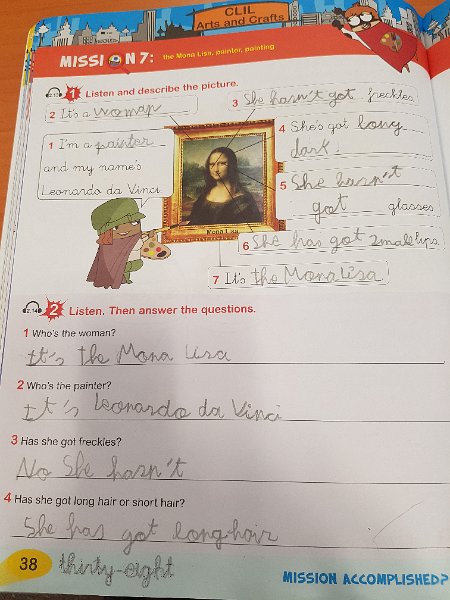 CLIL
Arts and Crafts
MISSION 7: the Mona Lisa, painter, painting
1 Listen and describe the picture.
2 It's a woman
3 She hasn't got freckles
1 I'm a painter
and my name's
Leonardo da Vinci
4 She's got long
dark.
5 She hasn't
got glasses
6 She has got small lips
7 It's the Mona Lisa
Mona Lisa
2 Listen. Then answer the questions.
1 Who's the woman?
It's the Mona Lisa
2 Who's the painter?
It's Leonardo da Vinci
3 Has she got freckles?
No She hasn't
4 Has she got long hair or short hair?
She has got long hair
38 thirty-eight
MISSION ACCOMPLISHED?